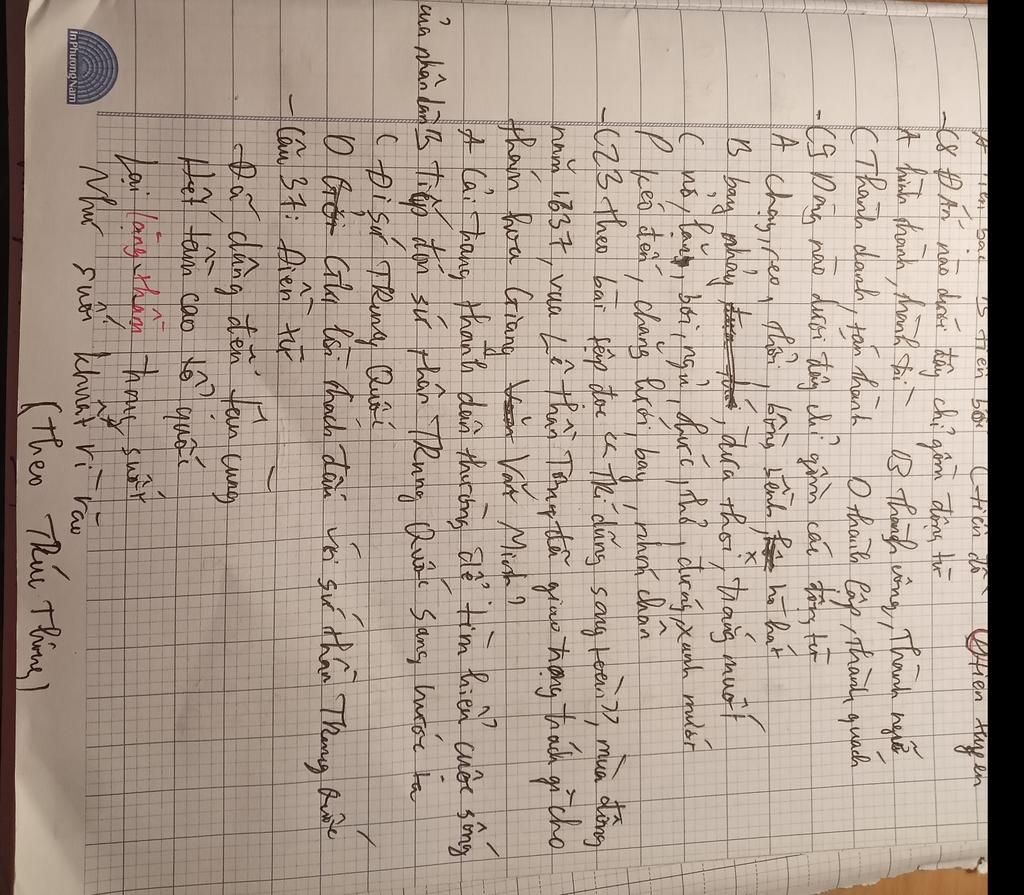 A tiền bạc B tiền bối C tiền đồ D tiền tuyến
- C8 Đ Án nào dưới đây chỉ gồm động từ
A hình thành, hành trì B thành công, Thành ngữ
C Thành danh, tán thành D thành lập, thành quách
- C9 Dòng nào dưới đây chỉ gồm các động từ
A chạy, reo, thổi, bồng bềnh, ca hát
B bay nhảy, đưa thoi, trắng muốt
C nở, lặn, bơi, ngủ, thức, thở, đứng, xanh mướt
D kéo đến, chăng lưới, bay, nhón chân
- C23 Theo bài tập đọc "Trí dũng song toàn", mùa đông
năm 1637, vua Lê Thần Tông đã giao trọng trách gì cho
thám hoa Giang Văn Minh?
A Cải trang thành dân thường để tìm hiểu cuộc sống
của nhân dân
B Tiếp đón sứ thần Trung Quốc sang nước ta
C Đi sứ Trung Quốc
D Gửi lời thách đấu với sứ thần Trung Quốc
- Câu 37: Điền từ
- Đã dâng đến tận cùng
Hết tầm cao tổ quốc
Lại lặng thầm trong suốt
Như suối khuất rì rào
(Theo Trúc Thông)
In Phương Nam